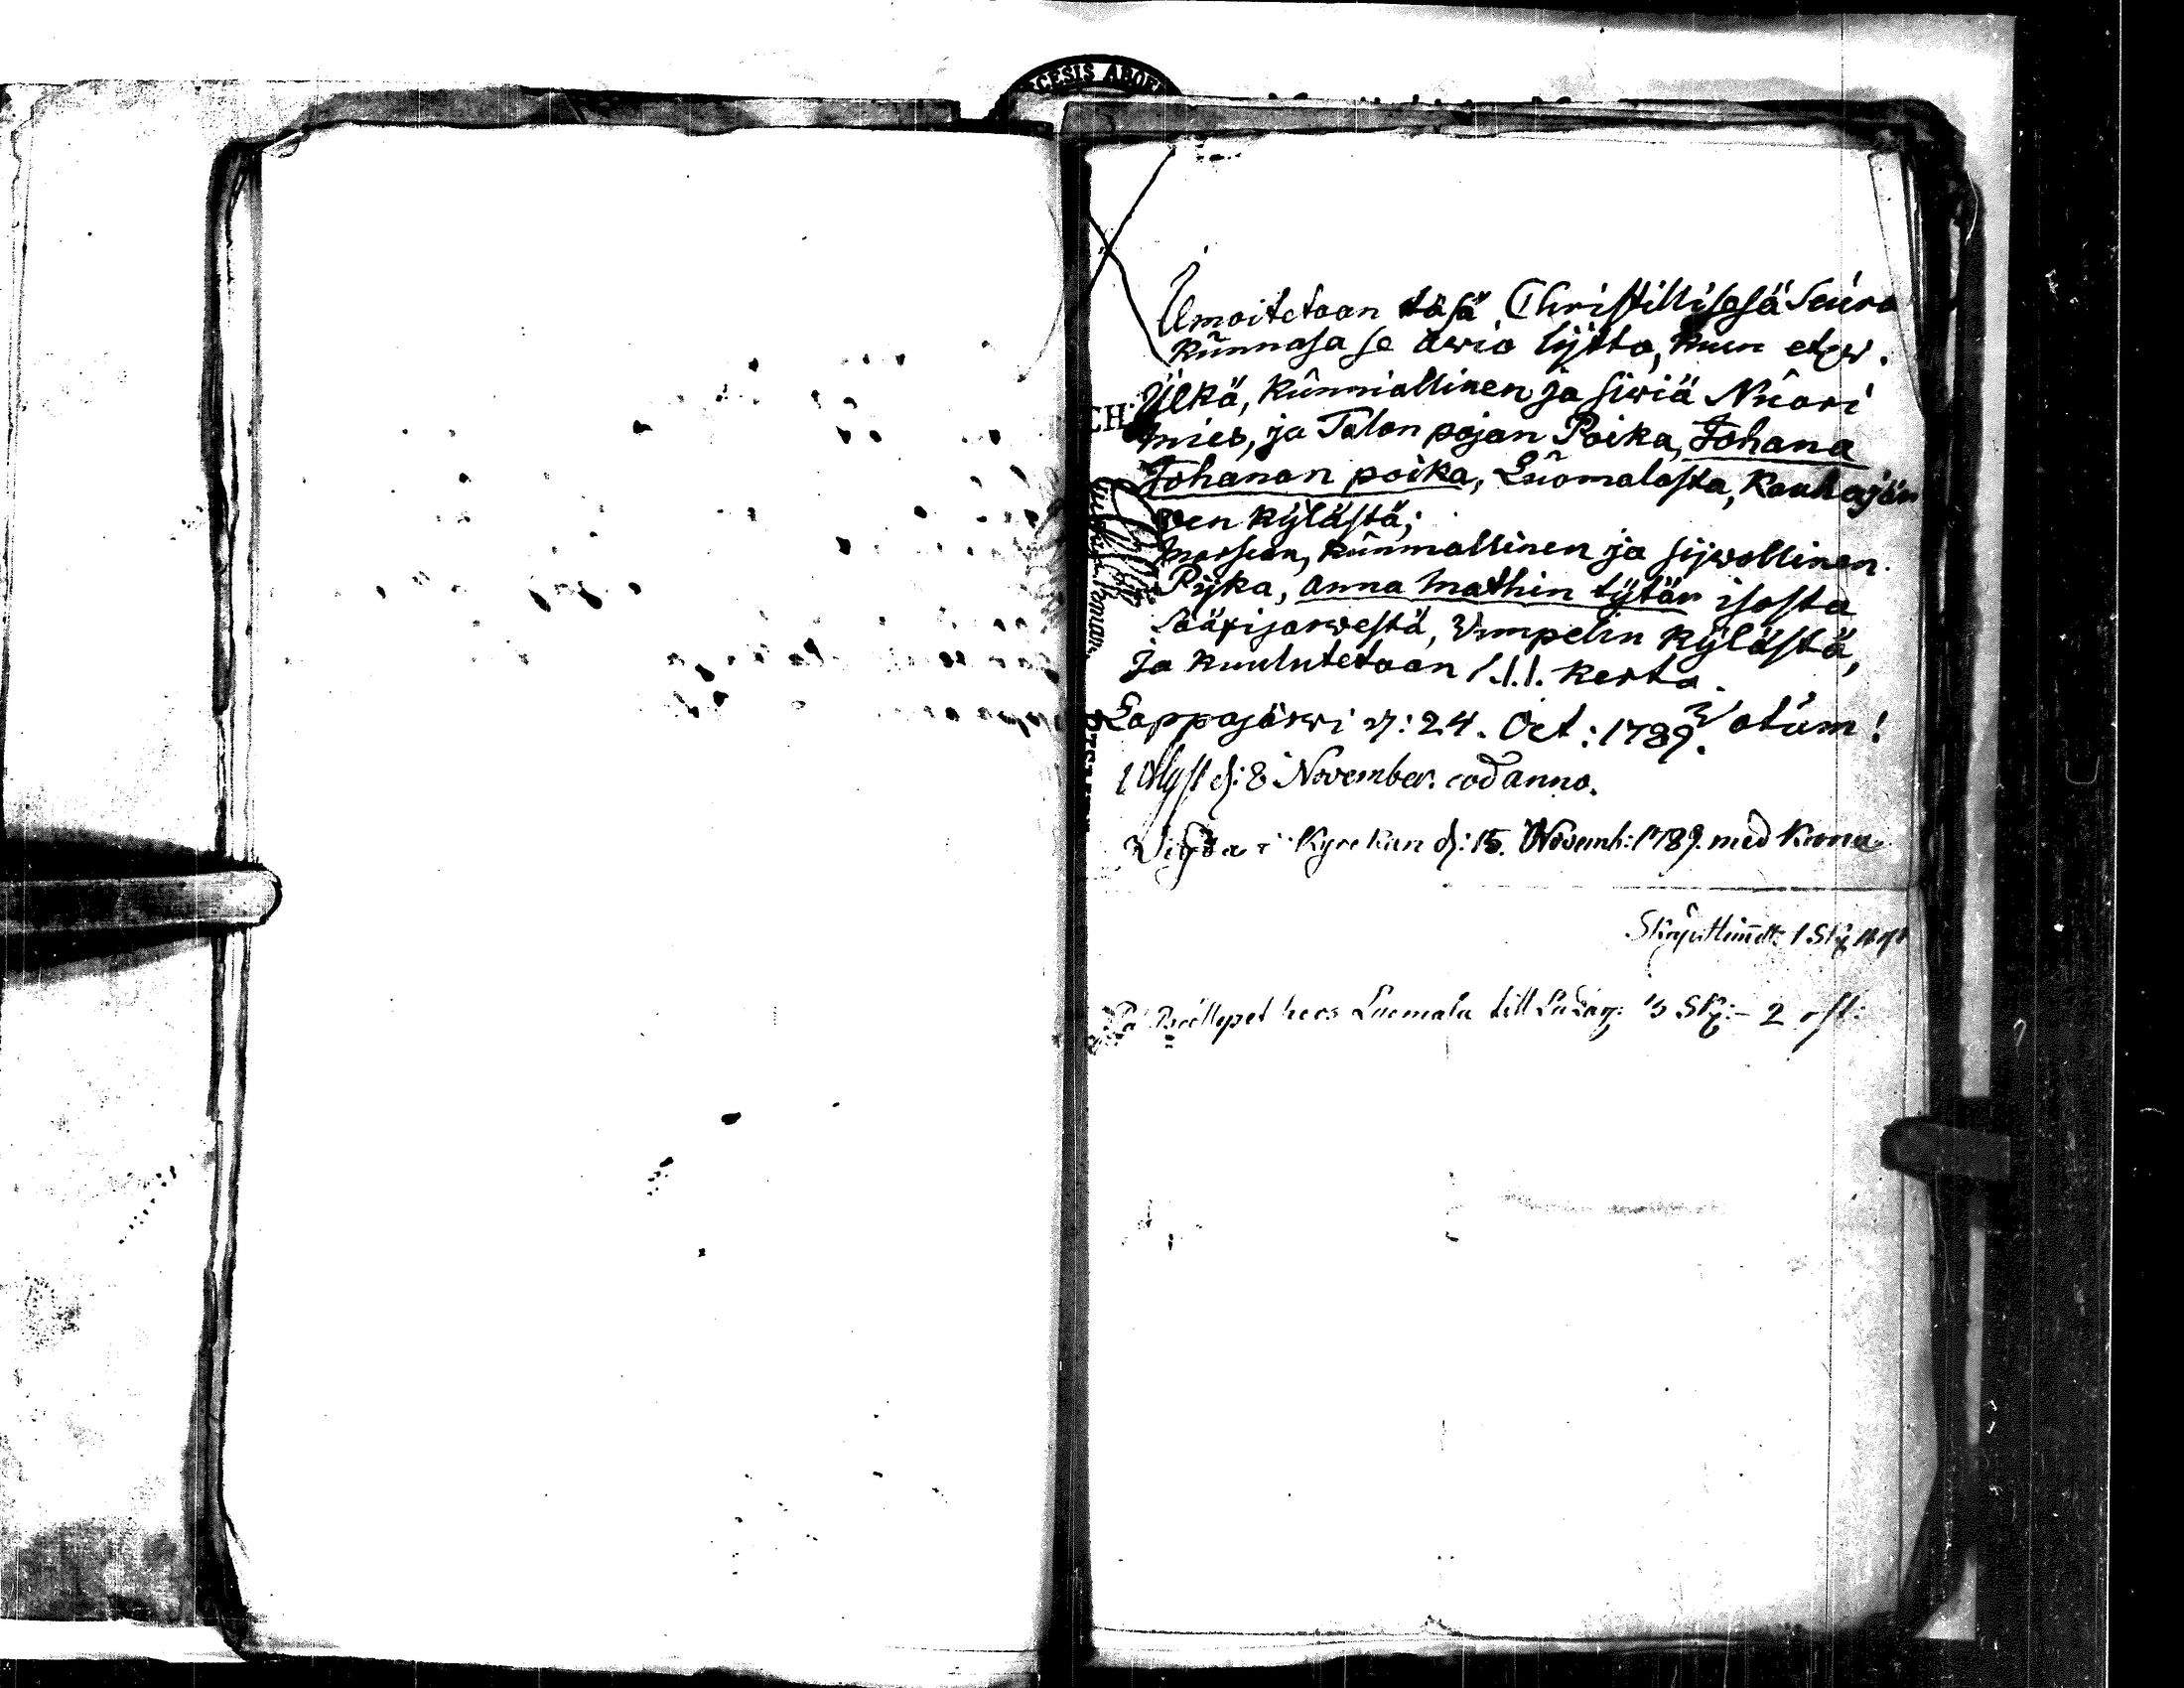 CESIS ABOE
Ilmoitetaan täsä Christillisesä Seura
kūnnasa se awio lijtto, kuin etzw.
Ylkä, kūnniallinen ja siwiä Nūori
mies, ja Talon pojan Poika, Johana
Johanan poika, Lūomalasta, Kauhajär
wen kylästä;
morsian, kūnniallinen ja sijwollinen
Pijka, Anna Mathin tytär isosta
Sääxijärwestä, Vimpelin kylästä,
ja kuulutetaan 1.1.1. kerta.
Lappajärwi d: 24. Oct: 1789. Votūm!
Utlyst d: 8 November. eod anno.
Wigda i Kyrckan d: 15. Novemb: 1789. med Krona
1 Sk
På Bröllopet hoos Luomala till 5 Sk:- 2 rst: